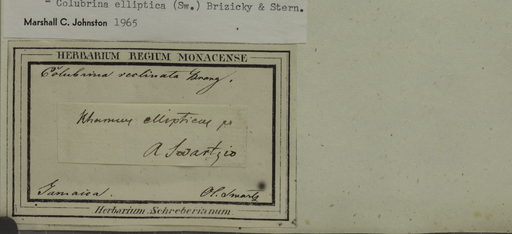 - Colubrina elliptica (Sw.) Brizicky & Stern.
Marshall C. Johnston 1965
HERBARIUM REGIUM MONACENSE
Colubrina reclinata Brong.
Rhamnus ellipticus
A Swartzio
Jamaica. Ol. Swartz
Herbarium Schreberianum